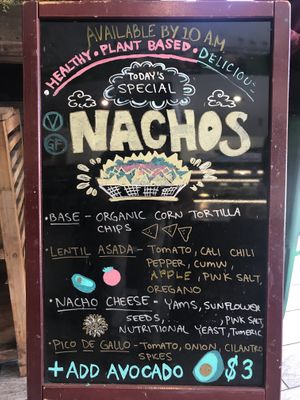 AVAILABLE BY 10 AM
• HEALTHY • PLANT BASED • DELICIOUS
TODAY'S
SPECIAL
V
GF
NACHOS
• BASE - ORGANIC CORN TORTILLA
CHIPS
• LENTIL ASADA - TOMATO, CALI CHILI
PEPPER, CUMIN,
APPLE, PINK SALT,
OREGANO
• NACHO CHEESE - YAMS, SUNFLOWER
SEEDS, PINK SALT,
NUTRITIONAL YEAST, TUMERIC
• PICO DE GALLO - TOMATO, ONION, CILANTRO
SPICES
+ ADD AVOCADO $3